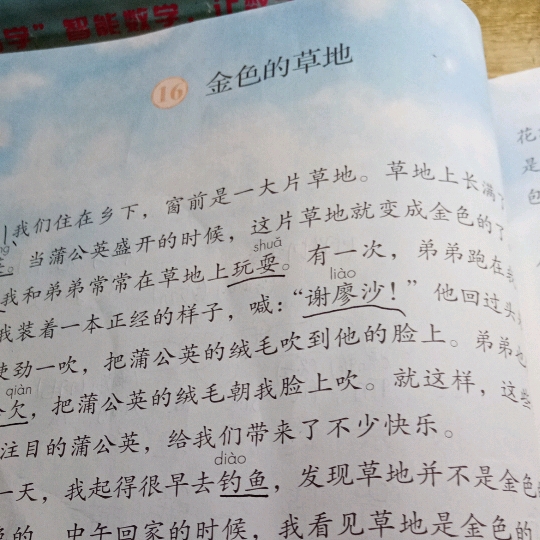 学”智能教学，让教
16 金色的草地
我们住在乡下，窗前是一大片草地。草地上长满
当蒲公英盛开的时候，这片草地就变成金色的了
shuǎ
我和弟弟常常在草地上玩耍。有一次，弟弟跑在
liào
我装着一本正经的样子，喊：“谢廖沙！”他回过头
使劲一吹，把蒲公英的绒毛吹到他的脸上。弟弟也
qiàn
欠，把蒲公英的绒毛朝我脸上吹。就这样，这些
注目的蒲公英，给我们带来了不少快乐。
diào
一天，我起得很早去钓鱼，发现草地并不是金色
的。中午回家的时候，我看见草地是金色的
花
是
包